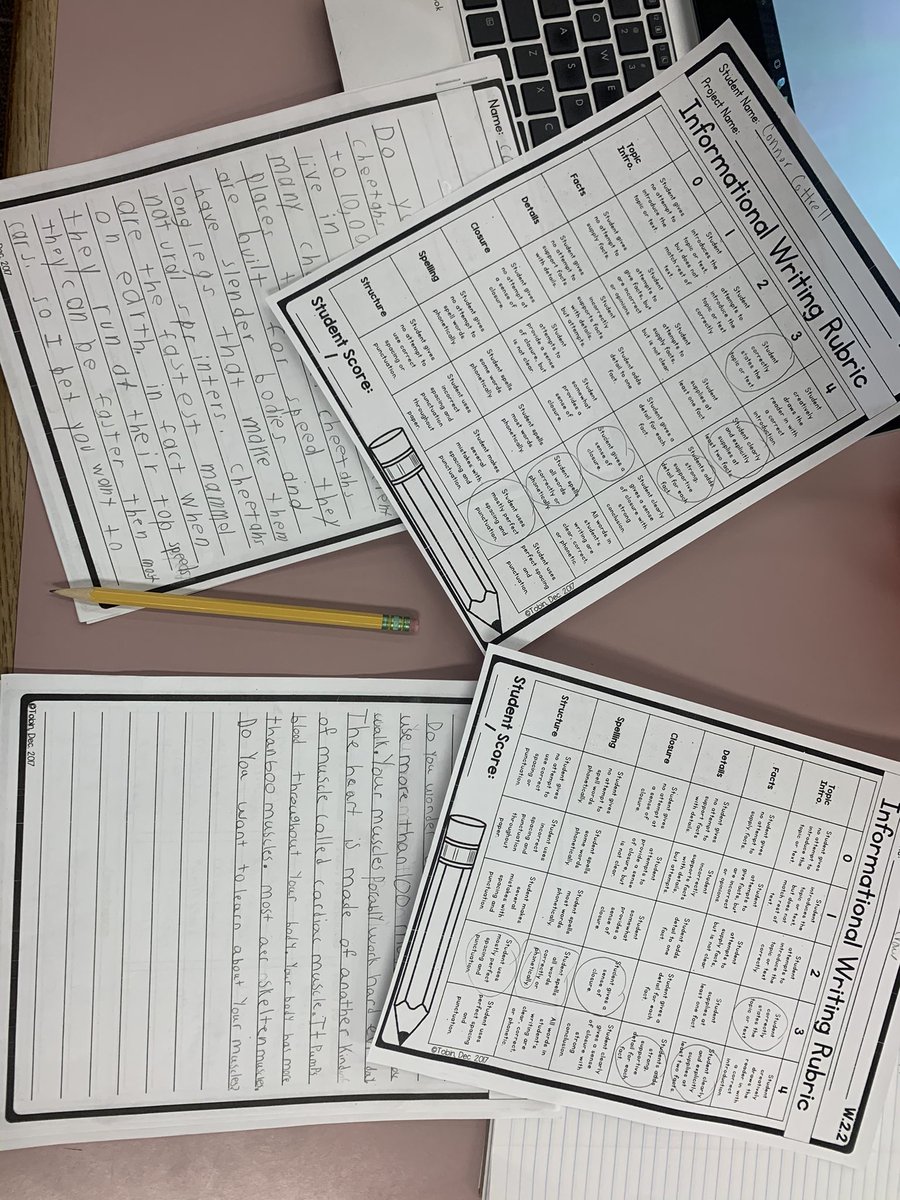 Student Name: Connor Cottrell
Project Name:
Informational Writing Rubric
0 1 2 3 4
Topic Intro.
Student gives no attempt to introduce the topic or text.
Student introduces the topic or text, but does not match rest of text.
Student attempts to introduce the topic or text correctly.
Student correctly states the topic or text.
Student creatively draws the reader in with a correct introduction.
Facts
Student gives no attempt to supply facts.
Student attempts to give facts, but are incorrect or opinions.
Student attempts to supply facts, but is not clear.
Student supplies at least one fact.
Student clearly and explicitly supplies at least two facts.
Details
Student gives no attempt to support facts with details.
Student incorrectly supports facts with details, but attempts.
Student adds detail to one fact.
Student gives a detail for each fact.
Students adds strong, supportive detail for each fact.
Closure
Student gives no attempt to a sense of closure.
Student attempts to provide a sense of closure, but is not clear.
Student somewhat provides a sense of closure.
Student gives a sense of closure.
Student clearly gives a sense of closure with strong conclusion.
Spelling
Student gives no attempt to spell words phonetically.
Student spells some words phonetically.
Student spells most words phonetically.
Student spells all words correctly or phonetically.
All words in student's writing are clear, correct, or phonetic.
Structure
Student gives no attempt to use correct spacing or punctuation.
Student uses incorrect spacing and punctuation throughout paper.
Student makes several mistakes with spacing and punctuation.
Student uses mostly perfect spacing and punctuation.
Student uses perfect spacing and punctuation.
Student Score:
/
©Tobin, Dec. 2017
Name:
Do
cheetahs
to 10,000 cheetahs
live in they
many speed and
places built for bodies them
are slender that make cheetahs
have legs printers.
long fastest mammal
natural the in fact when
are earth. top speeds,
on run at their then most
they can be faster
they so I bet you want to
cars.
Dec. 2017
Informational Writing Rubric
W.2.2
0 1 2 3 4
Topic Intro.
Student gives no attempt to introduce the topic or text.
introduces the topic or text, but does not match rest of text.
attempts to introduce the topic or text correctly.
Student correctly states the topic or text.
Student creatively draws the reader in with a correct introduction.
Facts
Student gives no attempt to supply facts.
Student attempts to give facts, but are incorrect or opinions.
Student attempts to supply facts, but is not clear.
Student supplies at least one fact.
Student clearly and explicitly supplies at least two facts.
Details
Student gives no attempt to support facts with details.
Student incorrectly supports facts with details, but attempts.
Student adds detail to one fact.
Student gives a detail for each fact.
Students adds strong, supportive detail for each fact.
Closure
Student gives no attempt to a sense of closure.
Student attempts to provide a sense of closure, but is not clear.
Student somewhat provides a sense of closure.
Student gives a sense of closure.
Student clearly gives a sense of closure with strong conclusion.
Spelling
Student gives no attempt to spell words phonetically.
Student spells some words phonetically.
Student spells most words phonetically.
Student spells all words correctly or phonetically.
All words in student's writing are clear, correct, or phonetic.
Structure
Student gives no attempt to use correct spacing or punctuation.
Student uses incorrect spacing and punctuation throughout paper.
Student makes several mistakes with spacing and punctuation.
Student uses mostly perfect spacing and punctuation.
Student uses perfect spacing and punctuation.
Student Score:
/
©Tobin, Dec. 2017
Do you wonder
use more than 100
walk. Your muscles Do all work hard
The heart is made of another kind
of muscle called cardiac muscle. It Pumps
blood throughout Your body. Your body has more
than 600 muscles. most aer skelten muscles.
Do You want to learn about Your muscles?
©Tobin, Dec. 2017